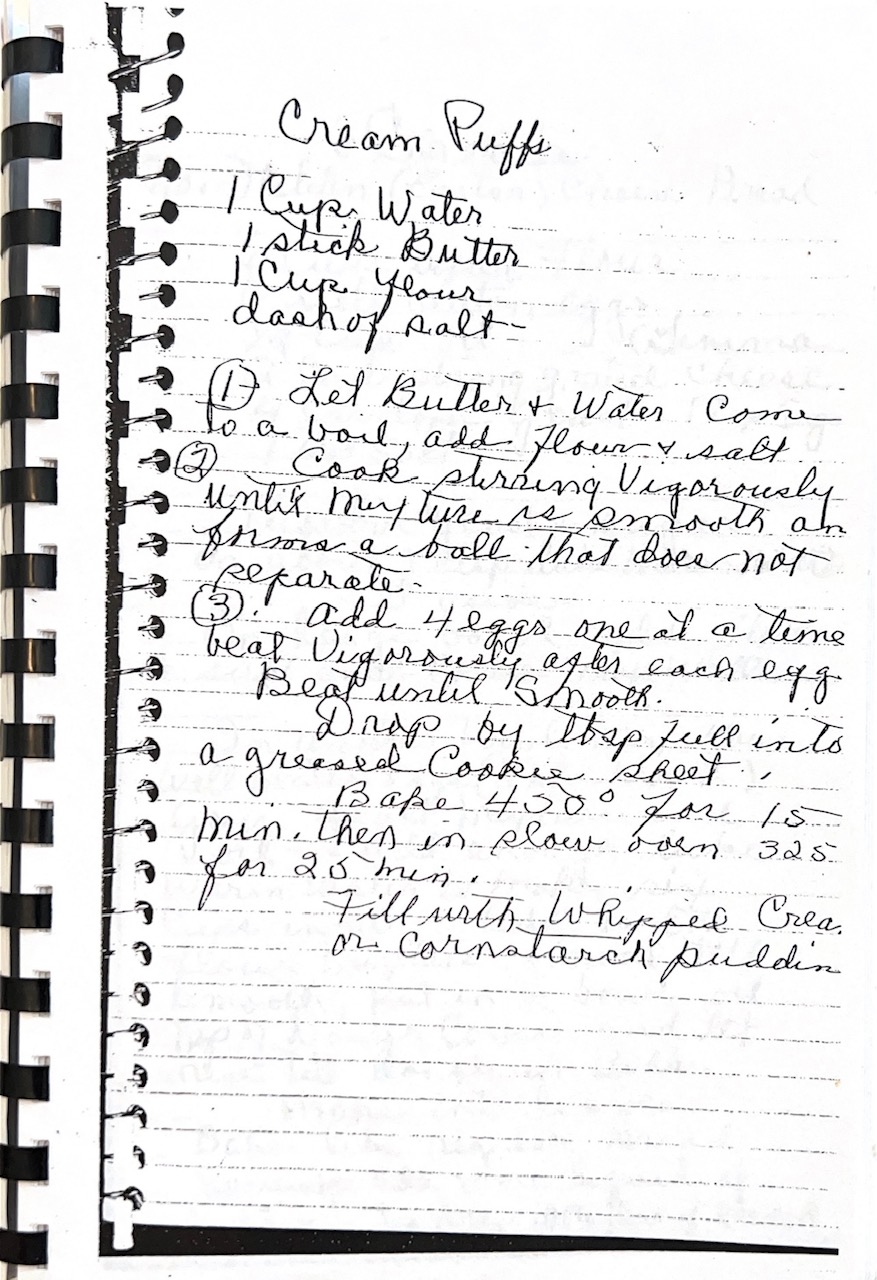 Cream Puffs
1 Cup Water
1 stick Butter
1 Cup flour
dash of salt -
1 Let Butter + Water Come
to a boil, add flour + salt
2 Cook stirring Vigorously
until mixture is smooth an
forms a ball that does not
separate -
3. add 4 eggs one at a time
beat Vigorously after each egg
Beat until Smooth.
Drop by tbsp full into
a greased Cookie sheet.
Bake 450° for 15
min. then in slow oven 325
for 25 min.
Fill with Whipped Crea
or Cornstarch puddin